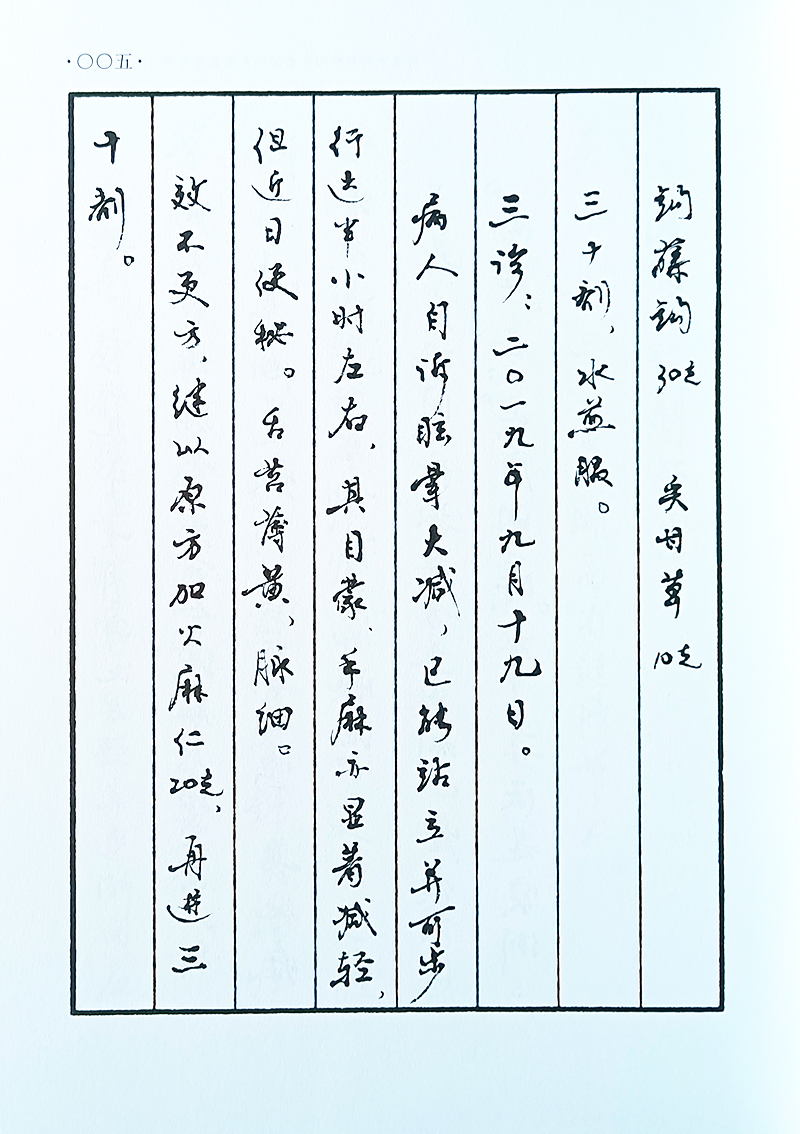 ·〇〇五·
钩藤钩30克 炙甘草10克
三十剂，水煎服。
三诊：二〇一九年九月十九日。
病人自诉眩晕大减，已能站立并可步
行达半小时左右，其目蒙、手麻亦显著减轻，
但近日便秘。舌苔薄黄，脉细。
效不更方，继以原方加火麻仁20克，再进三
十剂。